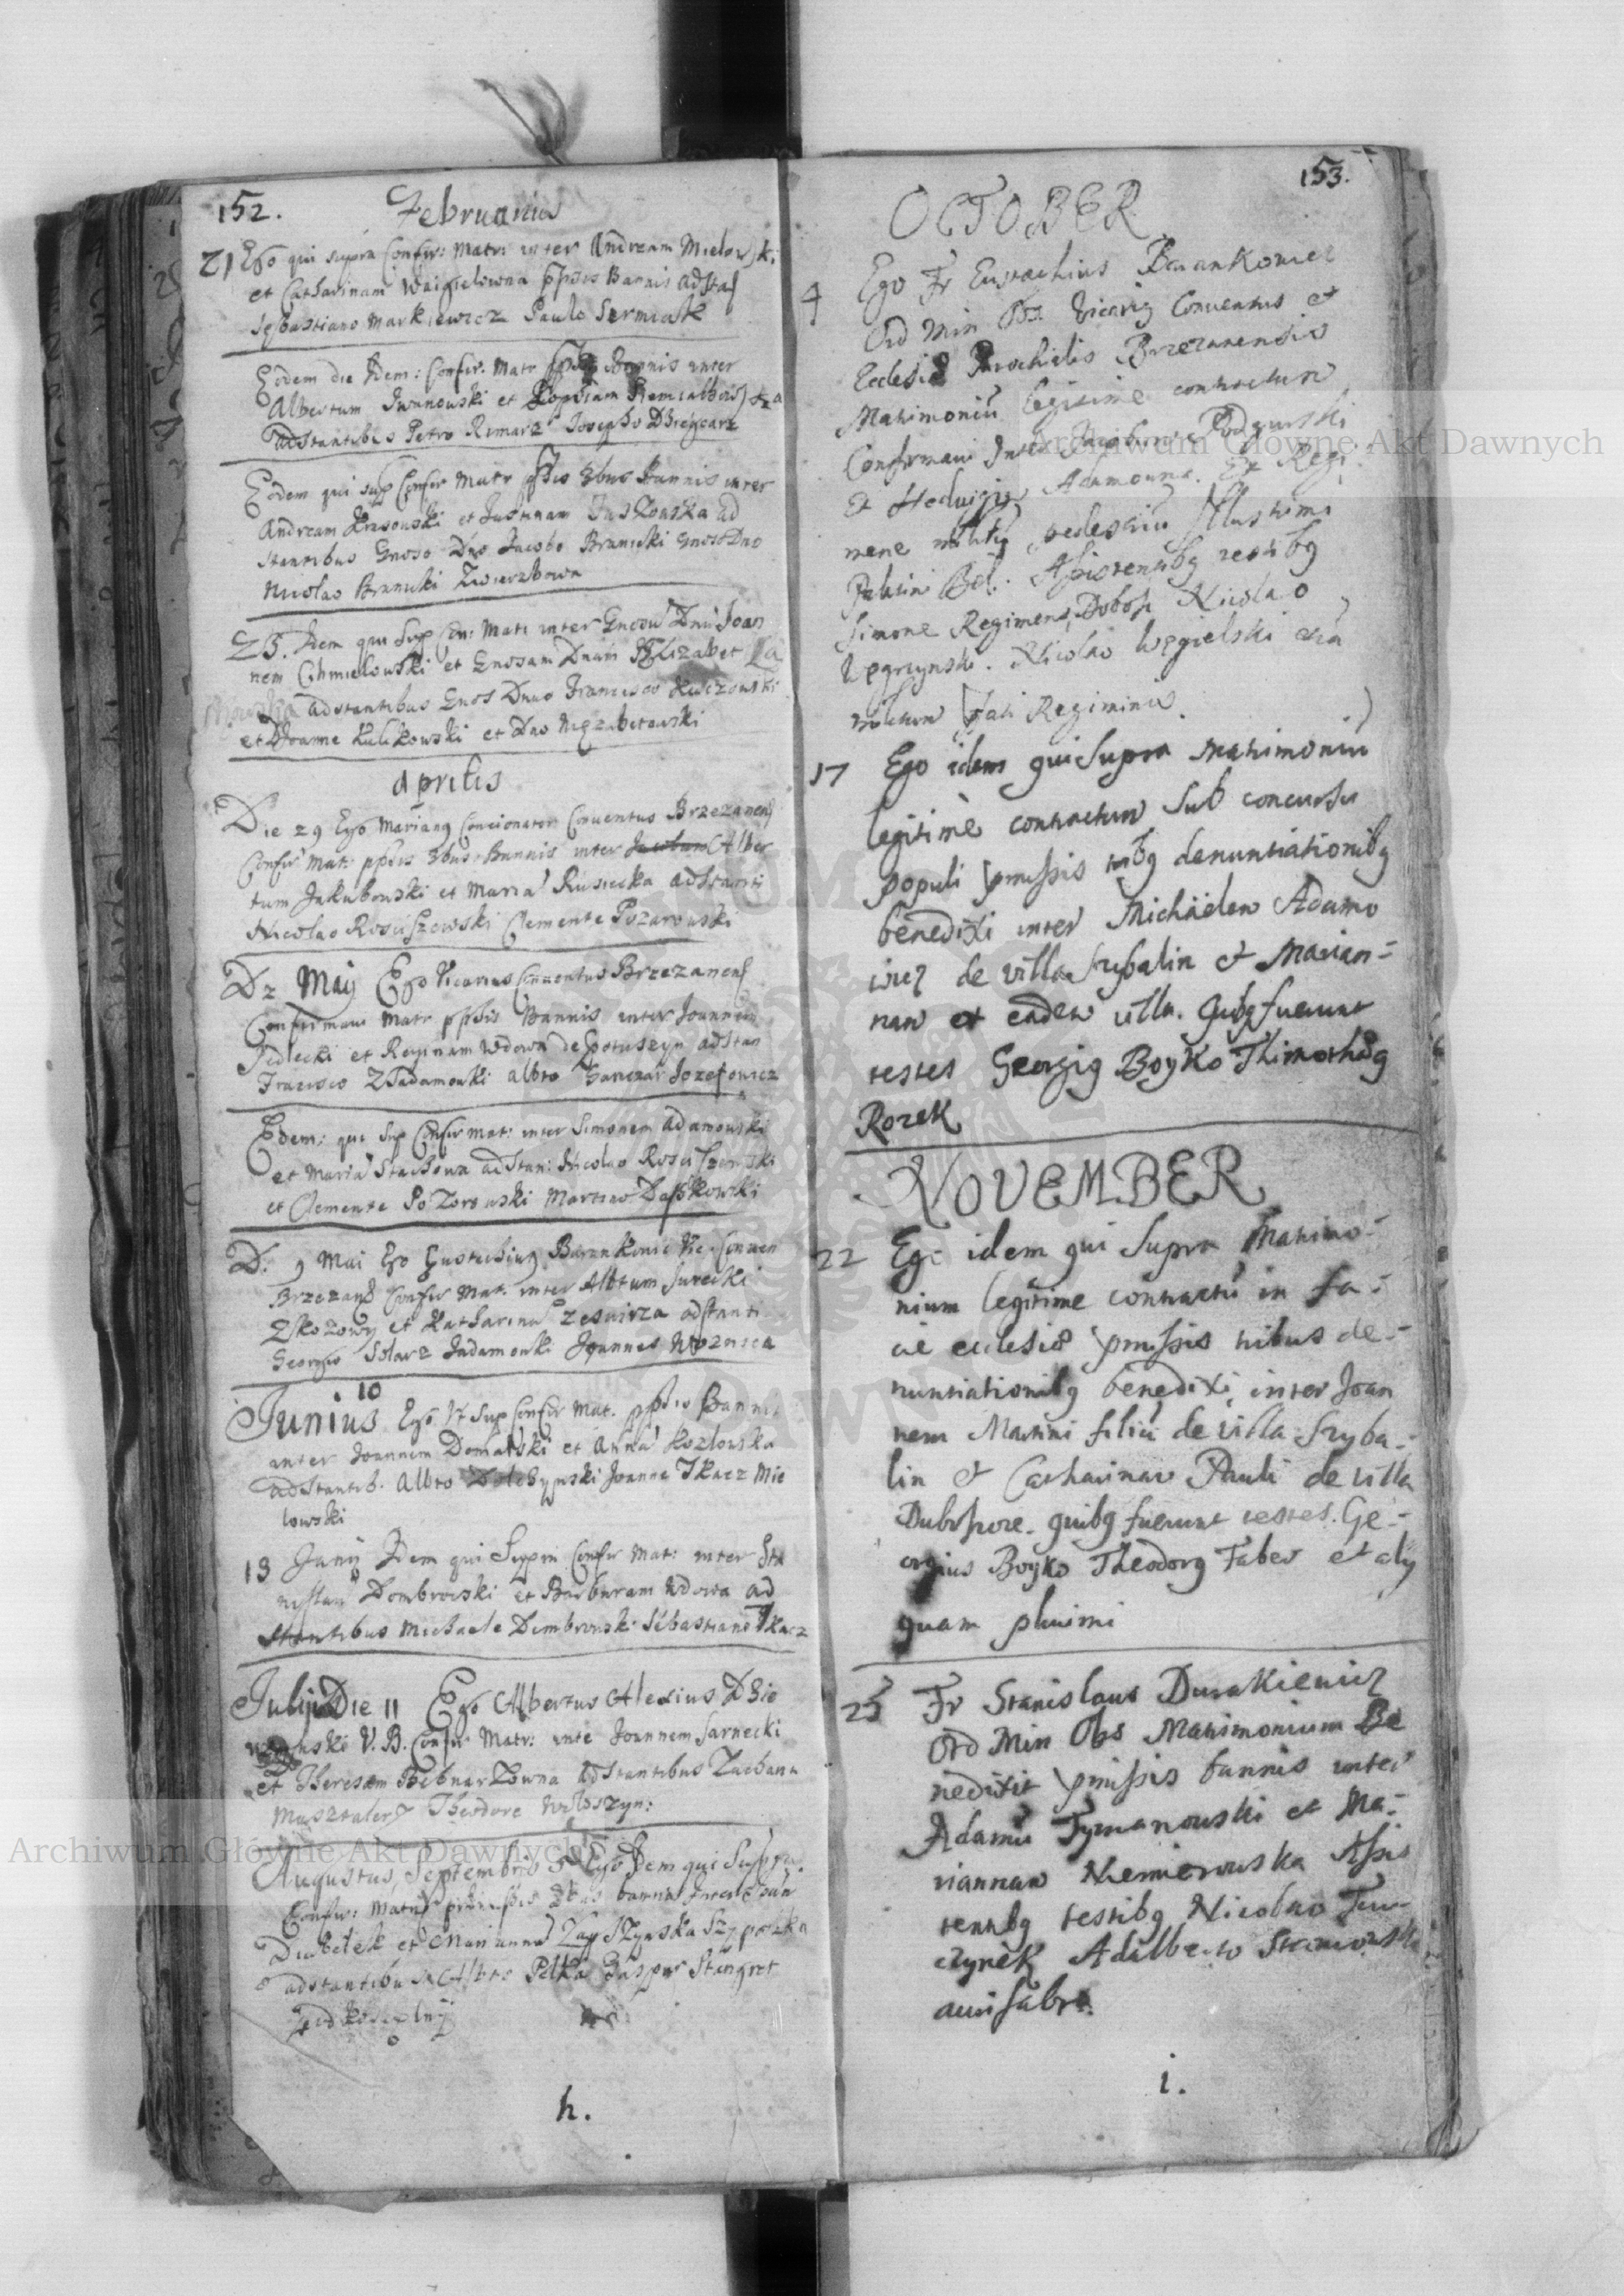 152.
Februarius
21 Ego qui supra Confir: Matr: inter Andream Mielowski
et Catharinam Waigielowna ppssis Bannis adstā
Sebastiano Markiewicz Paulo Sermiak
Eodem die Idem: Confir. Matr inter
Albertum Iwanowski et
adstantibus Petro Rimarz Josepho
Eodem qui sup Confir Matr ppssis 3bus Bannis inter
Andream Krasowski et Justinam ad
stantibus Gnoso Dno Jacobo Branicki Gnoso Dno
Nicolao Branicki
25. Idem qui Sup Con: Matr inter Gnosū Dnū Joan
nem Chmielowski et Gnosam Dnam Elizabet
adstantibus Gnos Dnno Francisco
et Joanne Kulikowski et Dno
Aprilis
Die 29 Ego Mariang Concionator Conuentus Brzezanens
Confir Mat: ppssis 3bus Bannis inter Alber
tum Jakubowski et Maria Rusiecka adstanti
Nicolao Rosciszewski Clemente Pozarowski
D 2 Maÿ Ego Vicarius Conuentus Brzezanens
Confirmaui Matr ppssis Bannis inter Joannem
Sedlecki et Reginam Wdowa de Potuszyn adstan
Francisco Albto Ganczar Jozefowicz
Edem: qui Sup Confir Mat: inter Simonem Adamowski
et Maria Stachowa adstan: Nicolao Rosciszewski
et Clemente Pozorowski Martino Daszkowski
D. 9 Mai Ego Eustachiug Barankowic Vic: Conuen
Brzezans Confir Mat. inter Albtum Surecki
et Katharina adstanti
Georgio Stolarz Jadamowski Joannes
10
Junius Ego Sup Confir Mat. ppssis Bannis
inter Joannem Domanski et Anna Kozlowska
adstantib. Albto Joanne Tkacz Mie
lowski
13 Junÿ Idem qui Supra Confir Mat: inter Sta
nislau Dombrowski et Barbaram Wdowa ad
stantibus Michaele Dembrowski Sebastiano Tkacz
Julÿ Die 11 Ego Albertus Alexius
V. B. Confir Matr: inte Joannem Sarnecki
et Theresam Bebnarzowna adstantibus
Masztalerz Theodore Woloszyn:
Augustus, Septembris 5 Ego Idem qui Supra
Confir: Matr: bannis
et Marianna
adstantibus Albto Pelka Gasper Stangret
h.
153.
OCTOBER
4 Ego Fr Eustachius Barankowicz
Ord Min Obs Vicarig Conuentus et
Ecclesiæ Parochialis Brzezanensis
Matrimoniū legitime contractum
Confirmaui Inter Jacobum Podgurski
Et Hedwigim Adamowna. Ex Regi
mene militū pedestriū Illustrimi
Palatini Bel: Assistentibg testibg
Simone Regimens Dobosz Nicolao
Węgrzynski. Nicolao Węgielski
militum Regiminis.
17 Ego idem qui Supra Matrimoniū
legitimè contractum Sub concursu
populi pmissis tribg denuntiationibg
benedixi inter Michäelem Adamo
wicz de villa Szybalin et Marian-
nam ex eadem villa. Quibg fuerunt
testes Georgig Boyko Thimotheg
Rozek
NOVEMBER
22 Ego idem qui Supra Matrimo-
nium legitime contractū in fa-
cie ecclesiæ pmissis tribus de-
nuntiationibg benedixi, inter Joan
nem Martini filiū de villa Szyba-
lin et Catharinam Pauli de villa
Dubszcze. quibg fuerunt testes. Ge-
orgius Boyko Theodorg Faber et alÿ
quam plurimi
25 Fr Stanislaus Durakiewicz
Ord Min Obs Matrimonium Be
nedixit pmissis bannis inter
Adamū Tymanowski et Ma-
riannam Niemierowska Assis
tentibg testibg Nicolao
Adalberto
aurifabro.
i.
Archiwum Główne Akt Dawnych
Archiwum Główne Akt Dawnych